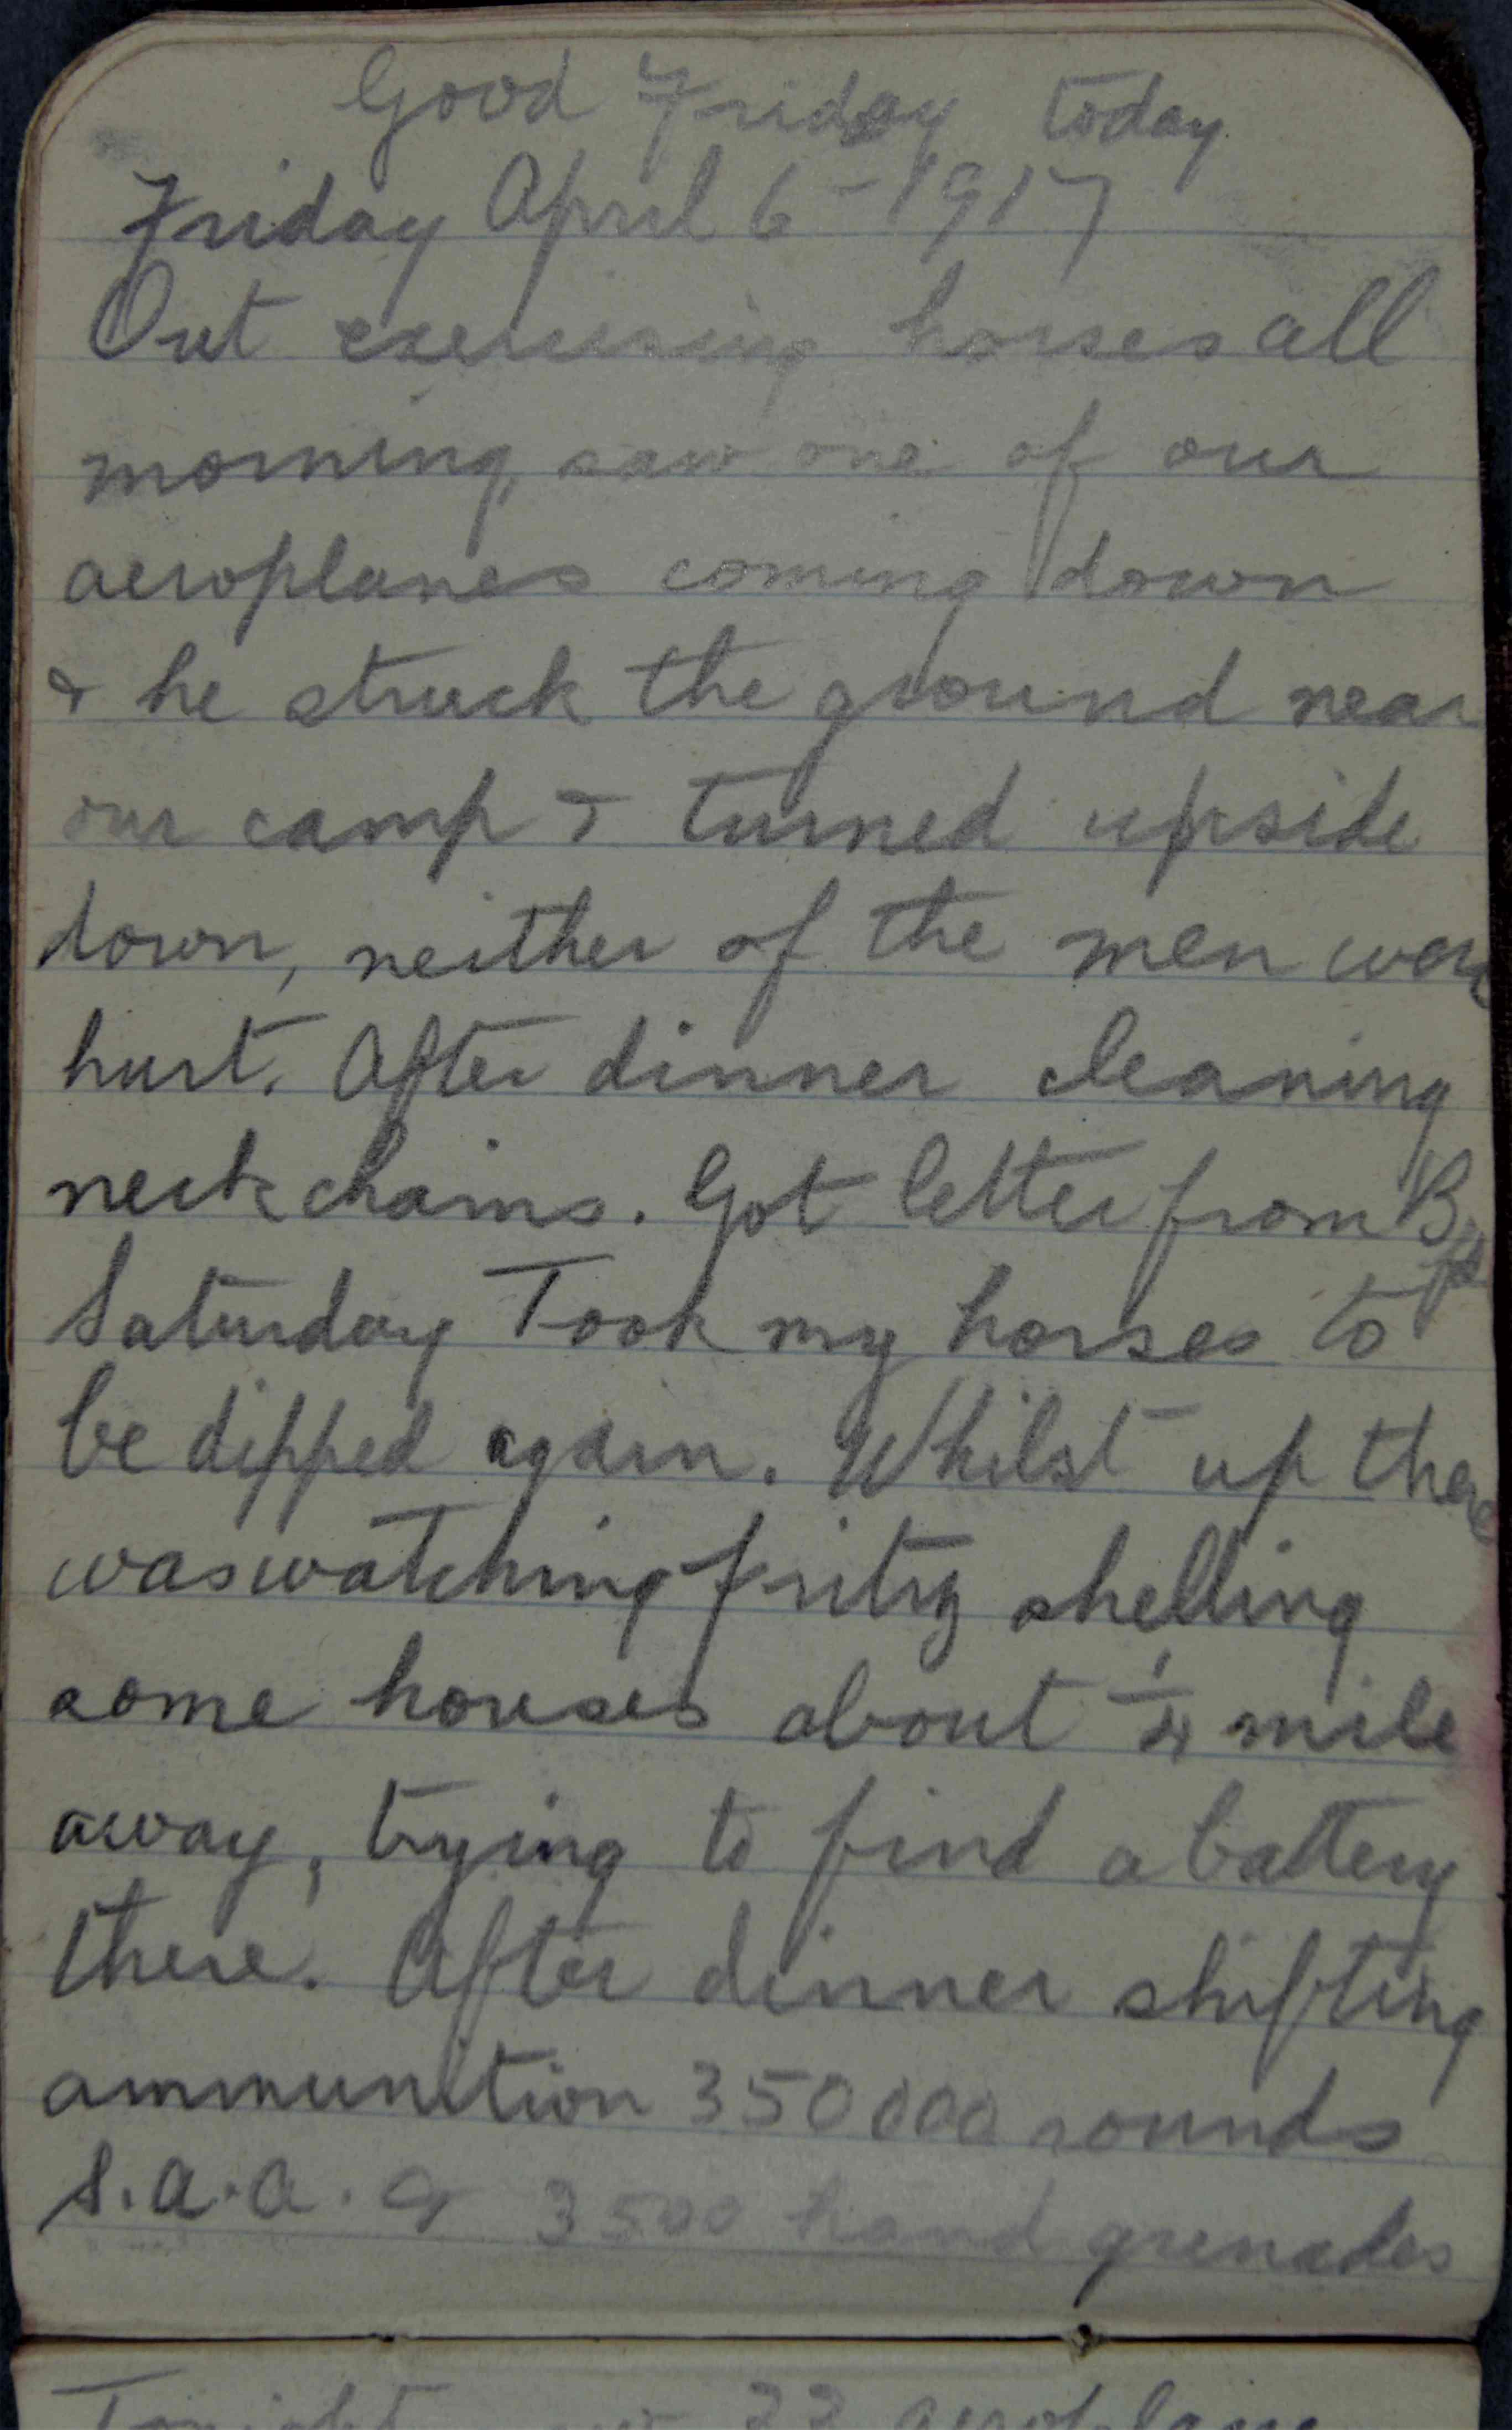 Good Friday today
Friday April 6 - 1917
Out exercising horses all
morning, saw one of our
aeroplanes coming down
& he struck the ground near
our camp & turned upside
down, neither of the men were
hurt. After dinner cleaning
neck chains. Got letter from
Saturday Took my horses to
be dipped again. Whilst up there
was watching Fritz shelling
some houses about 1/4 mile
away, trying to find a battery
there. After dinner shifting
ammunition 350000 rounds
S.a.a. & 3500 hand grenades
Tonight 22 aeroplane